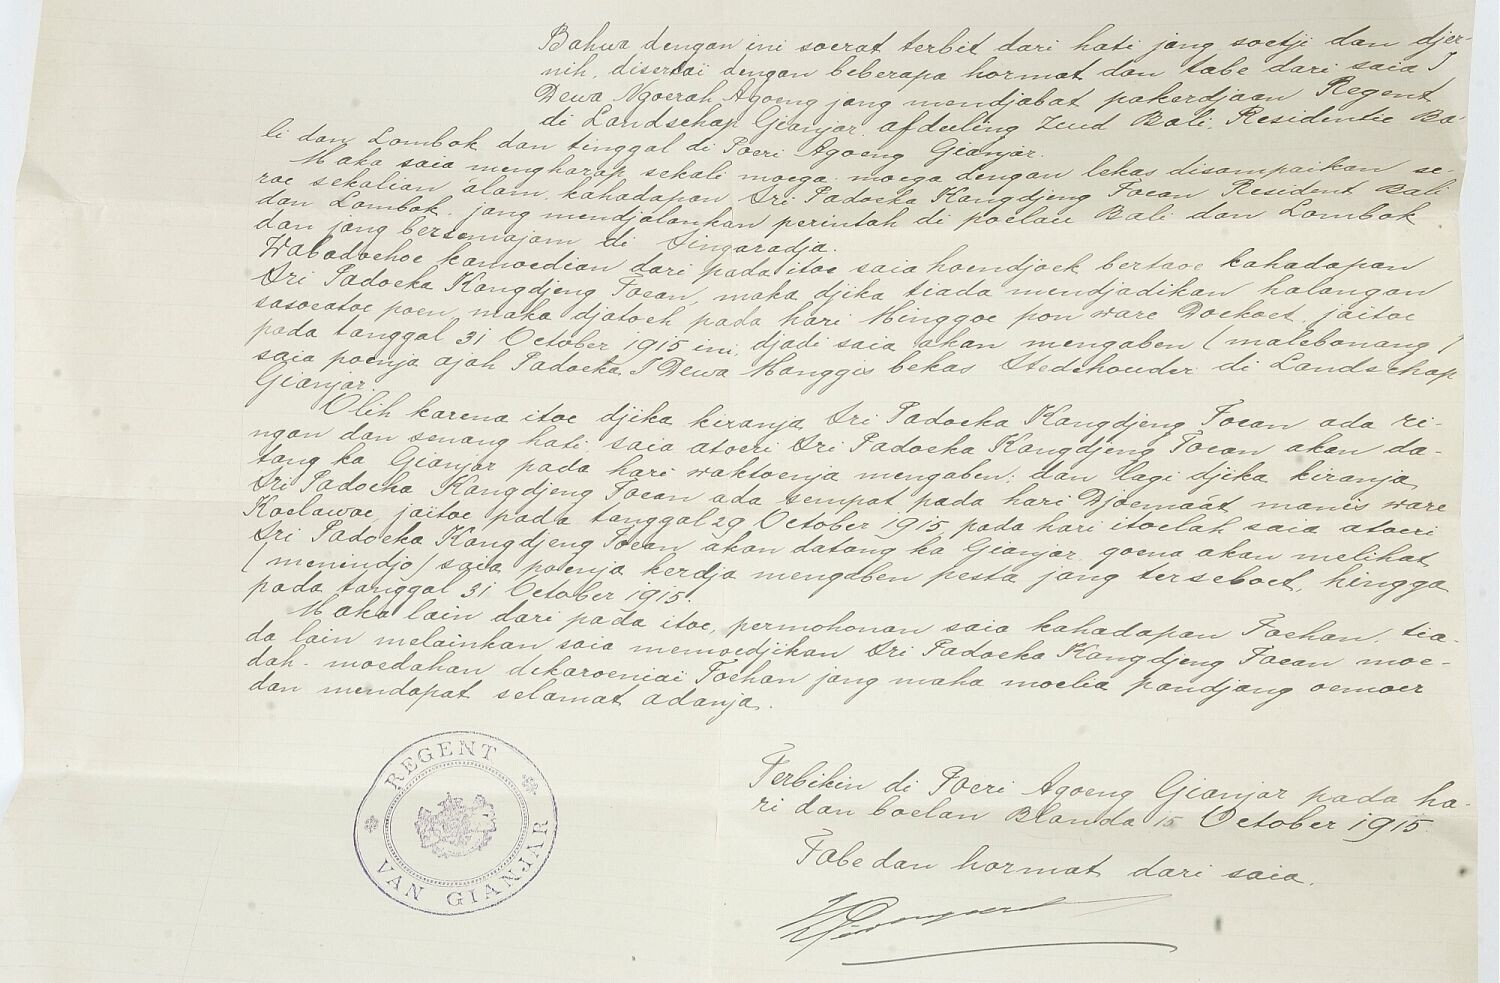 Bahwa dengan ini soerat terbit dari hati jang soetji dan djer-
nih, disertaï dengan beberapa hormat dan tabe dari saia I
Dewa Ngoerah Agoeng jang mendjabat pakerdjaan Regent
di Landschap Gianjar afdeeling Zuid Bali, Residentie Ba-
li dan Lombok dan tinggal di Poeri Agoeng Gianjar.
Maka saia mengharap sekali moega-moega dengan lekas disampaikan se-
roe sekalian alam, kahadapan Sri Padoeka Kangdjeng Toean Resident Bali
dan Lombok, jang mendjalankan perintah di poelau Bali dan Lombok
dan jang bersemajam di Singaradja.
Wabadoehoe kamoedian dari pada itoe saia hoendjoek bertaoe kahadapan
Sri Padoeka Kangdjeng Toean, maka djika tiada mendjadikan halangan
sasoeatoe poen, maka djatoeh pada hari Minggoe pon ware Doekoet, jaitoe
pada tanggal 31 October 1915 ini, djadi saia akan mengaben (malebonang)
saia poenja ajah Padoeka I Dewa Manggis bekas Stedehouder di Landschap
Gianjar.
Olih karena itoe djika kiranja Sri Padoeka Kangdjeng Toean ada ri-
ngan dan senang hati, saia atoeri Sri Padoeka Kangdjeng Toean akan da-
tang ka Gianjar pada hari waktoenja mengaben; dan lagi djika kiranja
Sri Padoeka Kangdjeng Toean ada sempat pada hari Djoemaát manis ware
Koelawoe jaïtoe pada tanggal 29 October 1915 pada hari itoelah saia atoeri
Sri Padoeka Kangdjeng Toean akan datang ka Gianjar goena akan melihat
(menindjo) saia poenja kerdja mengaben pesta jang terseboet, hingga
pada tanggal 31 October 1915.
Maka lain dari pada itoe, permohonan saia kahadapan Toehan, tia-
da lain melainkan saia memoedjikan Sri Padoeka Kangdjeng Toean moe-
dah-moedahan dikaroeniaï Toehan jang maha moelia pandjang oemoer
dan mendapat selamat adanja.
REGENT
VAN GIANJAR
Terbikin di Poeri Agoeng Gianjar pada ha-
ri dan boelan Blanda 15 October 1915.
Tabe dan hormat dari saia.